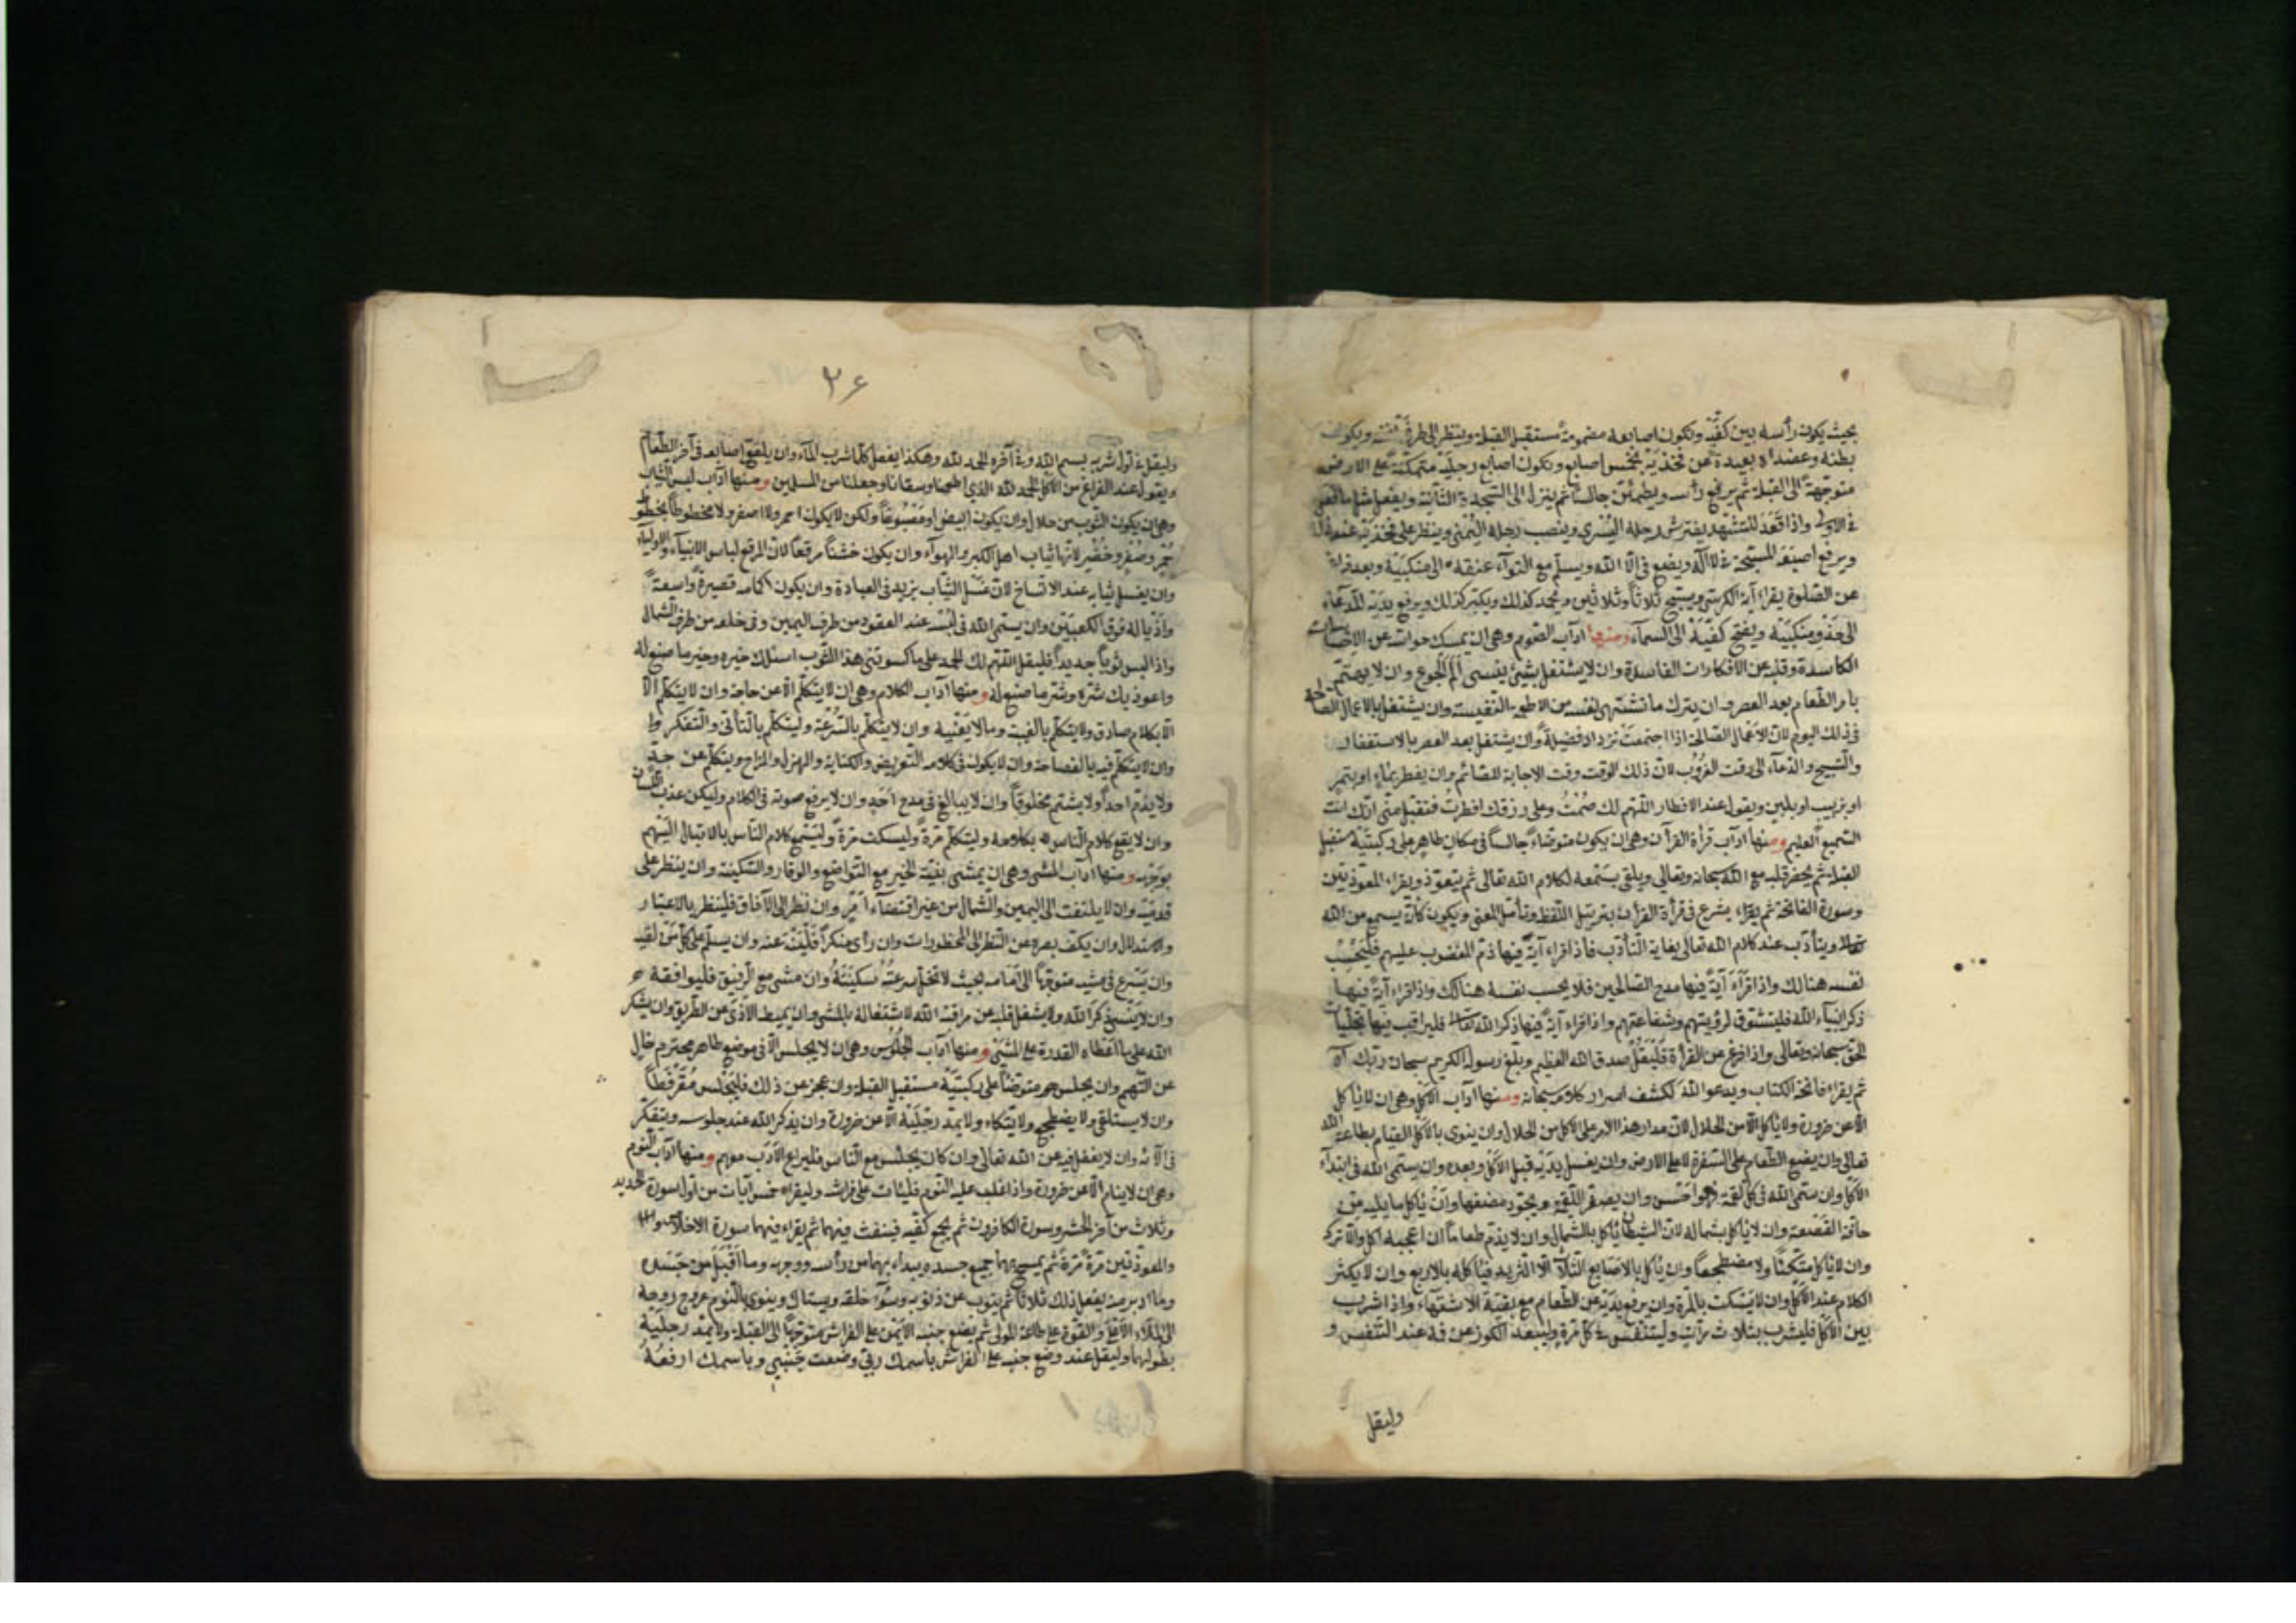 بحيث يكون رأسه بين كفيه وتكون اصابعه مضمومة مستقبل القبلة وينظر الى طرف انفه ويكون
بطنه وعضداه بعيدة عن فخذيه بخمس اصابع وتكون اصابع رجليه متمكنة على الارض
متوجهة الى القبلة ثم يرفع رأسه ويطمئن جالسا ثم ينزل الى السجدة الثانية ويفعل مثل ما فعل
في الاولى واذا قعد للتشهد يفترش رجله اليسرى وينصب رجله اليمنى وينظر على فخذيه
ويرفع اصبعه المسبحة في لا اله ويضع في الا الله ويسلم مع التواء عنقه الى منكبيه وبعد فراغه
عن الصلوة يقراء آية الكرسي ويسبح ثلاثا وثلاثين ويحمد كذلك ويكبر كذلك ويرفع يديه للدعاء
الى حذو منكبيه ويفتح كفيه الى السماء ومنها آداب الصوم وهى ان يمسك حواسه عن
الكاسدة وقلبه عن الافكارات الفاسدة وان لا يشتغل بشيئ ينسى الم الجوع وان لا يهتم
بامر الطعام بعد العصر وان يترك ما تشتهى نفسه من الاطعمة النفيسة وان يشتغل بالاعمال الصالحة
فى ذلك اليوم لان الاعمال الصالحة اذا اجتمعت تزداد فضيلة وان يشتغل بعد العصر بالاستغفار
والتسبيح والدعاء الى وقت الغروب لان ذلك الوقت وقت الاجابة للصائم وان يفطر بماء او بتمر
او بزبيب او بلبن ويقول عند الافطار اللهم لك صمت وعلى رزقك افطرت فتقبل منى انك انت
السميع العليم ومنها آداب قرأة القرآن وهى ان يكون متوضاء جالسا فى مكان طاهر على ركبتيه مستقبل
القبلة ثم يحضر قلبه مع الله سبحانه وتعالى ويلقى سمعه لكلام الله تعالى ثم يتعوذ ويقراء المعوذتين
وسورة الفاتحة ثم يقراء يشرع فى قرأة القرأن بترتيل اللفظ وتأمل المعنى ويكون كأنه يسمع من الله
ويتأدب عند كلام الله تعالى بغاية التأدب فاذا قراء آية فيها ذم المغضوب عليهم فليحسب
نفسه هنالك واذا قراء آية فيها مدح الصالحين فلا يحسب نفسه هنالك واذا قراء آية فيها
ذكر انبياء الله فليتشوق لرؤيتهم وشفاعتهم واذا قراء آية فيها ذكر الله تعالى فليراقب فيها تجليات
الحق سبحانه وتعالى واذا فرغ من القرأة فليقل صدق الله العظيم وبلغ رسوله الكريم سبحان ربك آه
ثم يقراء فاتحة الكتاب ويدعوا الله لكشف اسرار كلامه سبحانه ومنها آداب الاكل وهى ان لا يأكل
الا عن ضرورة ولا يأكل الا من الحلال لان مدار هذا الامر على الاكل من الحلال وان ينوى بالاكل القيام بطاعة الله
تعالى وان يضع الطعام على السفرة لا على الارض وان يغسل يديه قبل الاكل وبعده وان يسمى الله فى ابتداء
الاكل وان سمى الله فى كل لقمة فهو احسن وان يصغر اللقمة ويجود مضغها وان يأكل مما يليه من
حافة القصعة وان لا يأكل بشماله لان الشيطان يأكل بالشمال وان لا يذم طعاما ان اعجبه اكل والا ترك
وان لا يأكل متكئا ولا مضطجعا وان يأكل بالاصابع الثلاث الا الثريد فيأكله بالاربع وان لا يكثر
الكلام عند الاكل وان لا يسكت بالمرة وان يرفع يده عن الطعام مع بقية الاشتهاء واذا شرب
بين الاكل فليشرب بثلاث مرات وليتنفس في كل مرة وليبعد الكوز عن فمه عند التنفس و
وليقل
٣٦
وليقل في اول شربه بسم الله وفي آخره الحمد لله وهكذا يفعل كلما شرب الماء وان يلعق اصابعه فى آخر الطعام
ويقول عند الفراغ من الاكل الحمد لله الذي اطعمنا وسقانا وجعلنا من المسلمين ومنها آداب لبس الثياب
وهى ان يكون الثوب من حلال وان يكون ابيض او مصبوغا ولكن لا يكون احمر ولا اصفر ولا مخطوطا بخطوط
حمر وصفر وخضر لانها ثياب اهل الكبر والهواء وان يكون خشنا مرقعا لان المرقع لباس الانبياء والاولياء
وان يغسل ثيابه عند الاتساخ لان غسل الثياب يزيد فى العبادة وان يكون اكمامه قصيرة واسعة
واذياله فوق الكعبين وان يسمى الله فى لبسه عند العقود من طرف اليمين وفى خلعه من طرف الشمال
واذا لبس ثوبا جديدا فليقل اللهم لك الحمد على ما كسوتنى هذا الثوب اسئلك خيره وخير ما صنع له
واعوذ بك شره وشر ما صنع له ومنها آداب الكلام وهى ان لا يتكلم الا عن حاجة وان لا يتكلم الا
الا بكلام صادق ولا يتكلم بالغيبة وما لا يعنيه وان لا يتكلم بالسرعة وليتكلم بالتأنى والتفكر
وان لا يتكلم فيه بالفصاحة وان لا يكون فى كلامه التعريض والكناية والهزل والمزاح ويتكلم عن جد
ولا يذم احدا ولا يشتم مخلوقا وان لا يبالغ فى مدح احد وان لا يرفع صوته فى الكلام وليكن عذب اللسان
وان لا يقع كلام الناس بكلامه وليتكلم مرة وليسكت مرة وليسمع كلام الناس بالاقبال اليهم
بوجهه ومنها آداب المشى وهى ان يمشى بنية الخير مع التواضع والوقار والسكينة وان ينظر على
قدميه وان لا يلتفت الى اليمين والشمال من غير اقتضاء امر وان نظر الى الآفاق فلينظر بالاعتبار
والاستدلال وان يكف بصره عن النظر الى المحظورات وان رأى منكرا عنه وان يسلم على كل من لقيه
وان يسرع فى مشيه متوجها الى امامه بحيث لا تخل سرعته سكينته وان مشى مع الرفيق فليوافقه
وان لا ينسى ذكر الله ولا يشغل قلبه عن مراقبة الله لاشتغاله بالمشى وان يميط الاذى عن الطريق وان يشكر
الله على ما اعطاه القدرة على المشى ومنها آداب الجلوس وهى ان لا يجلس الا فى موضع طاهر محترم خال
عن التهم وان يجلس متوضئا على ركبتيه مستقبل القبلة وان عجز عن ذلك فليجلس
وان لا يستلقى ولا يضطجع ولا يتكاء ولا يمد رجليه الا عن ضرورة وان يذكر الله عند جلوسه ويتفكر
فى آلائه وان لا يغفل فيه عن الله تعالى وان كان يجلس مع الناس فليراع الادب معهم ومنها آداب النوم
وهى ان لا ينام الا عن ضرورة واذا غلب عليه النوم فليأت على فراشه وليقراء خمس آيات من اول سورة الحديد
وثلاث من آخر الحشر وسورة الكافرون ثم يجمع كفيه فينفث فيهما ثم يقراء فيهما سورة الاخلاص
والمعوذتين مرة مرة ثم يمسح بهما جميع جسده يبداء بهما من رأسه ووجهه وما اقبل من جسده
وما ادبر منه يفعل ذلك ثلاثا ثم يتوب عن ذنوبه وسوء خلقه ويستاك وينوى بالنوم عروج روحه
الى الملاء الاعلى والقوة على طاعة المولى ثم يضع جنبه الايمن على الفراش متوجها الى القبلة ولا يمد رجليه
بطولهما وليقل عند وضع جنبه على الفراش باسمك ربى وضعت جنبي وباسمك ارفعه